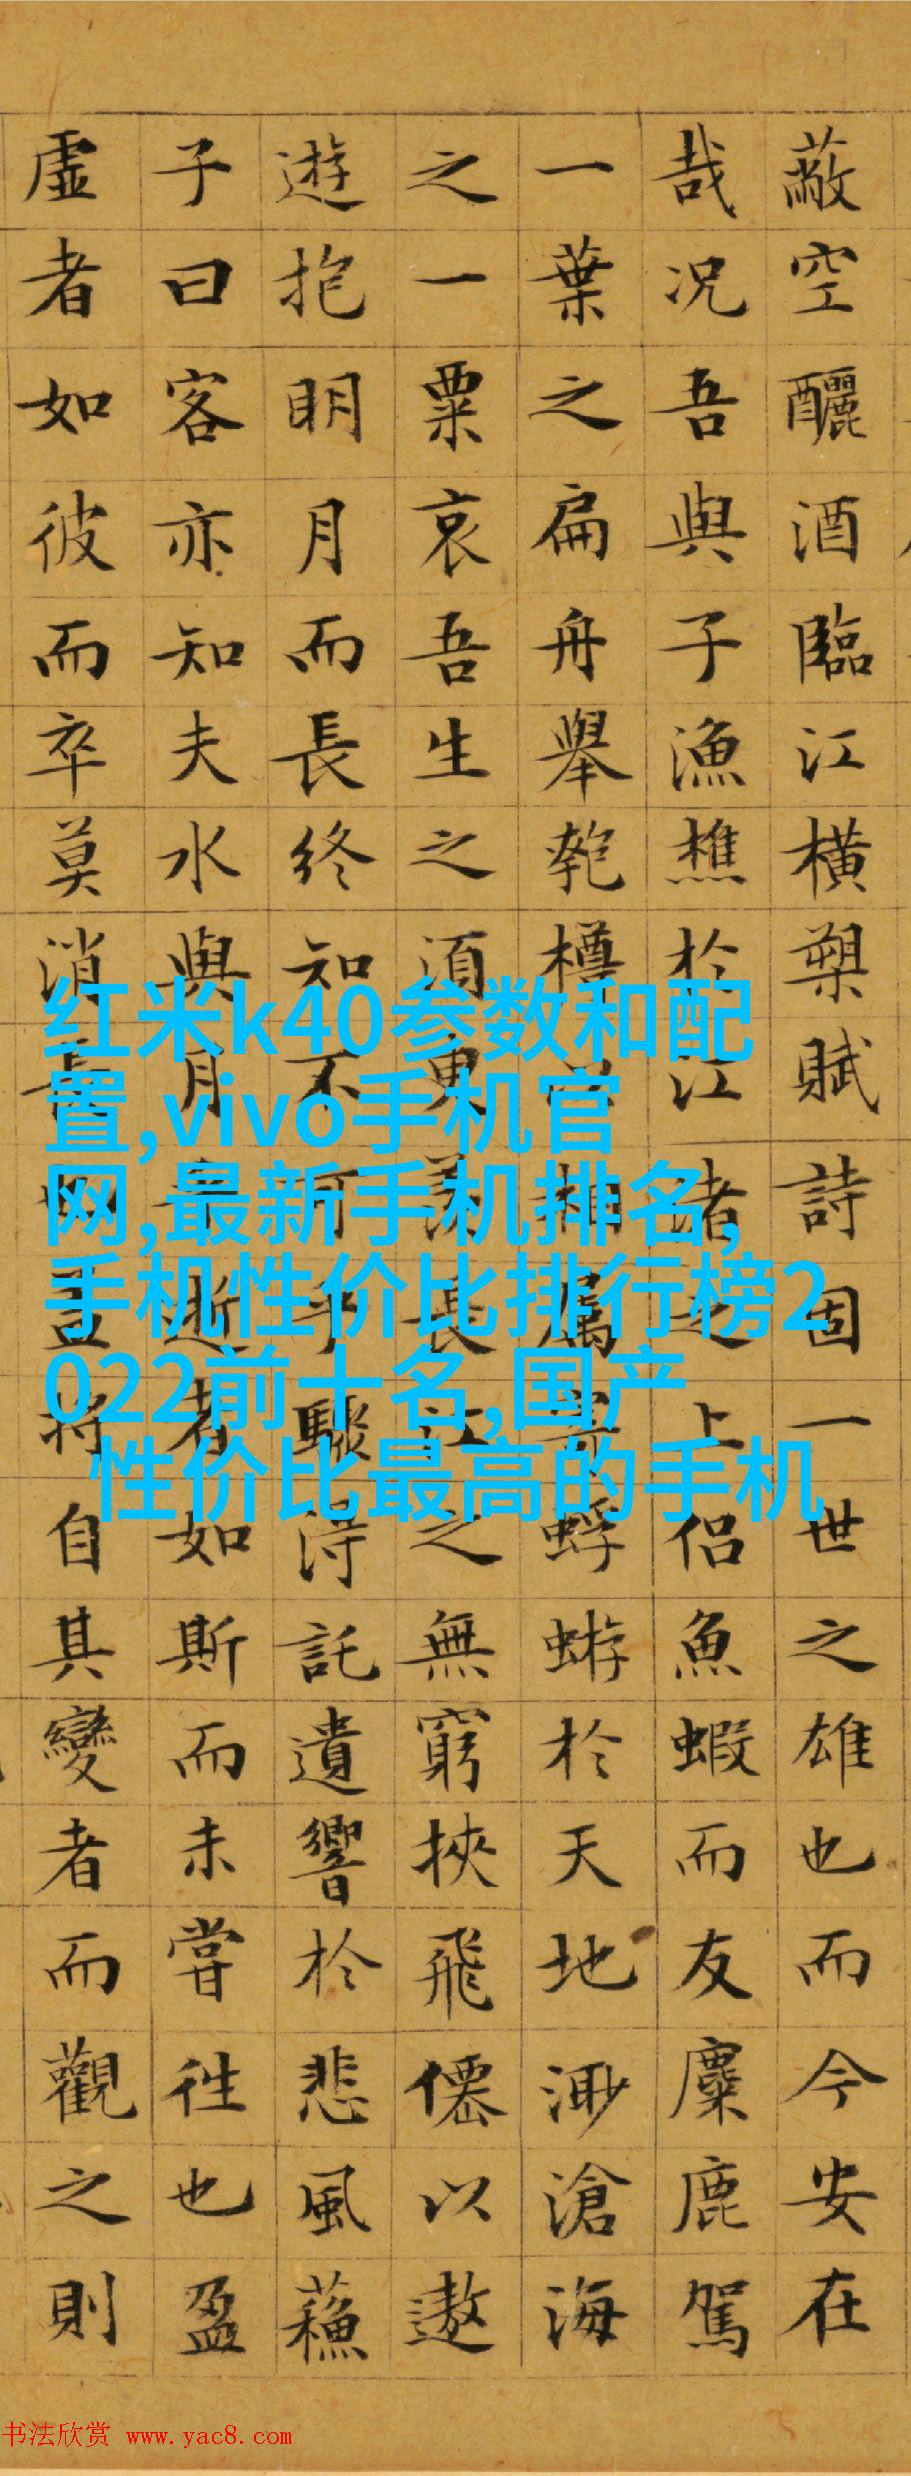 蔽空釃酒臨江橫槊賦詩固一世之雄也而今安在
哉况吾與子漁樵於江渚之上侣魚蝦而友麋鹿駕
一葉之扁舟舉匏樽以相属寄蜉蝣於天地渺滄海
之一粟哀吾生之須臾羨長江之無窮挾飛僊以遨
遊抱明月而長終知不可乎驟得託遺響於悲風蘓
子曰客亦知夫水與月乎逝者如斯而未嘗往也盈
虛者如彼而卒莫消長也盖将自其變者而觀之則
红米k40参数和配
置,vivo手机官
网,最新手机排名,
手机性价比排行榜2
022前十名,国产
性价比最高的手机
书法欣赏 www.yac8.com